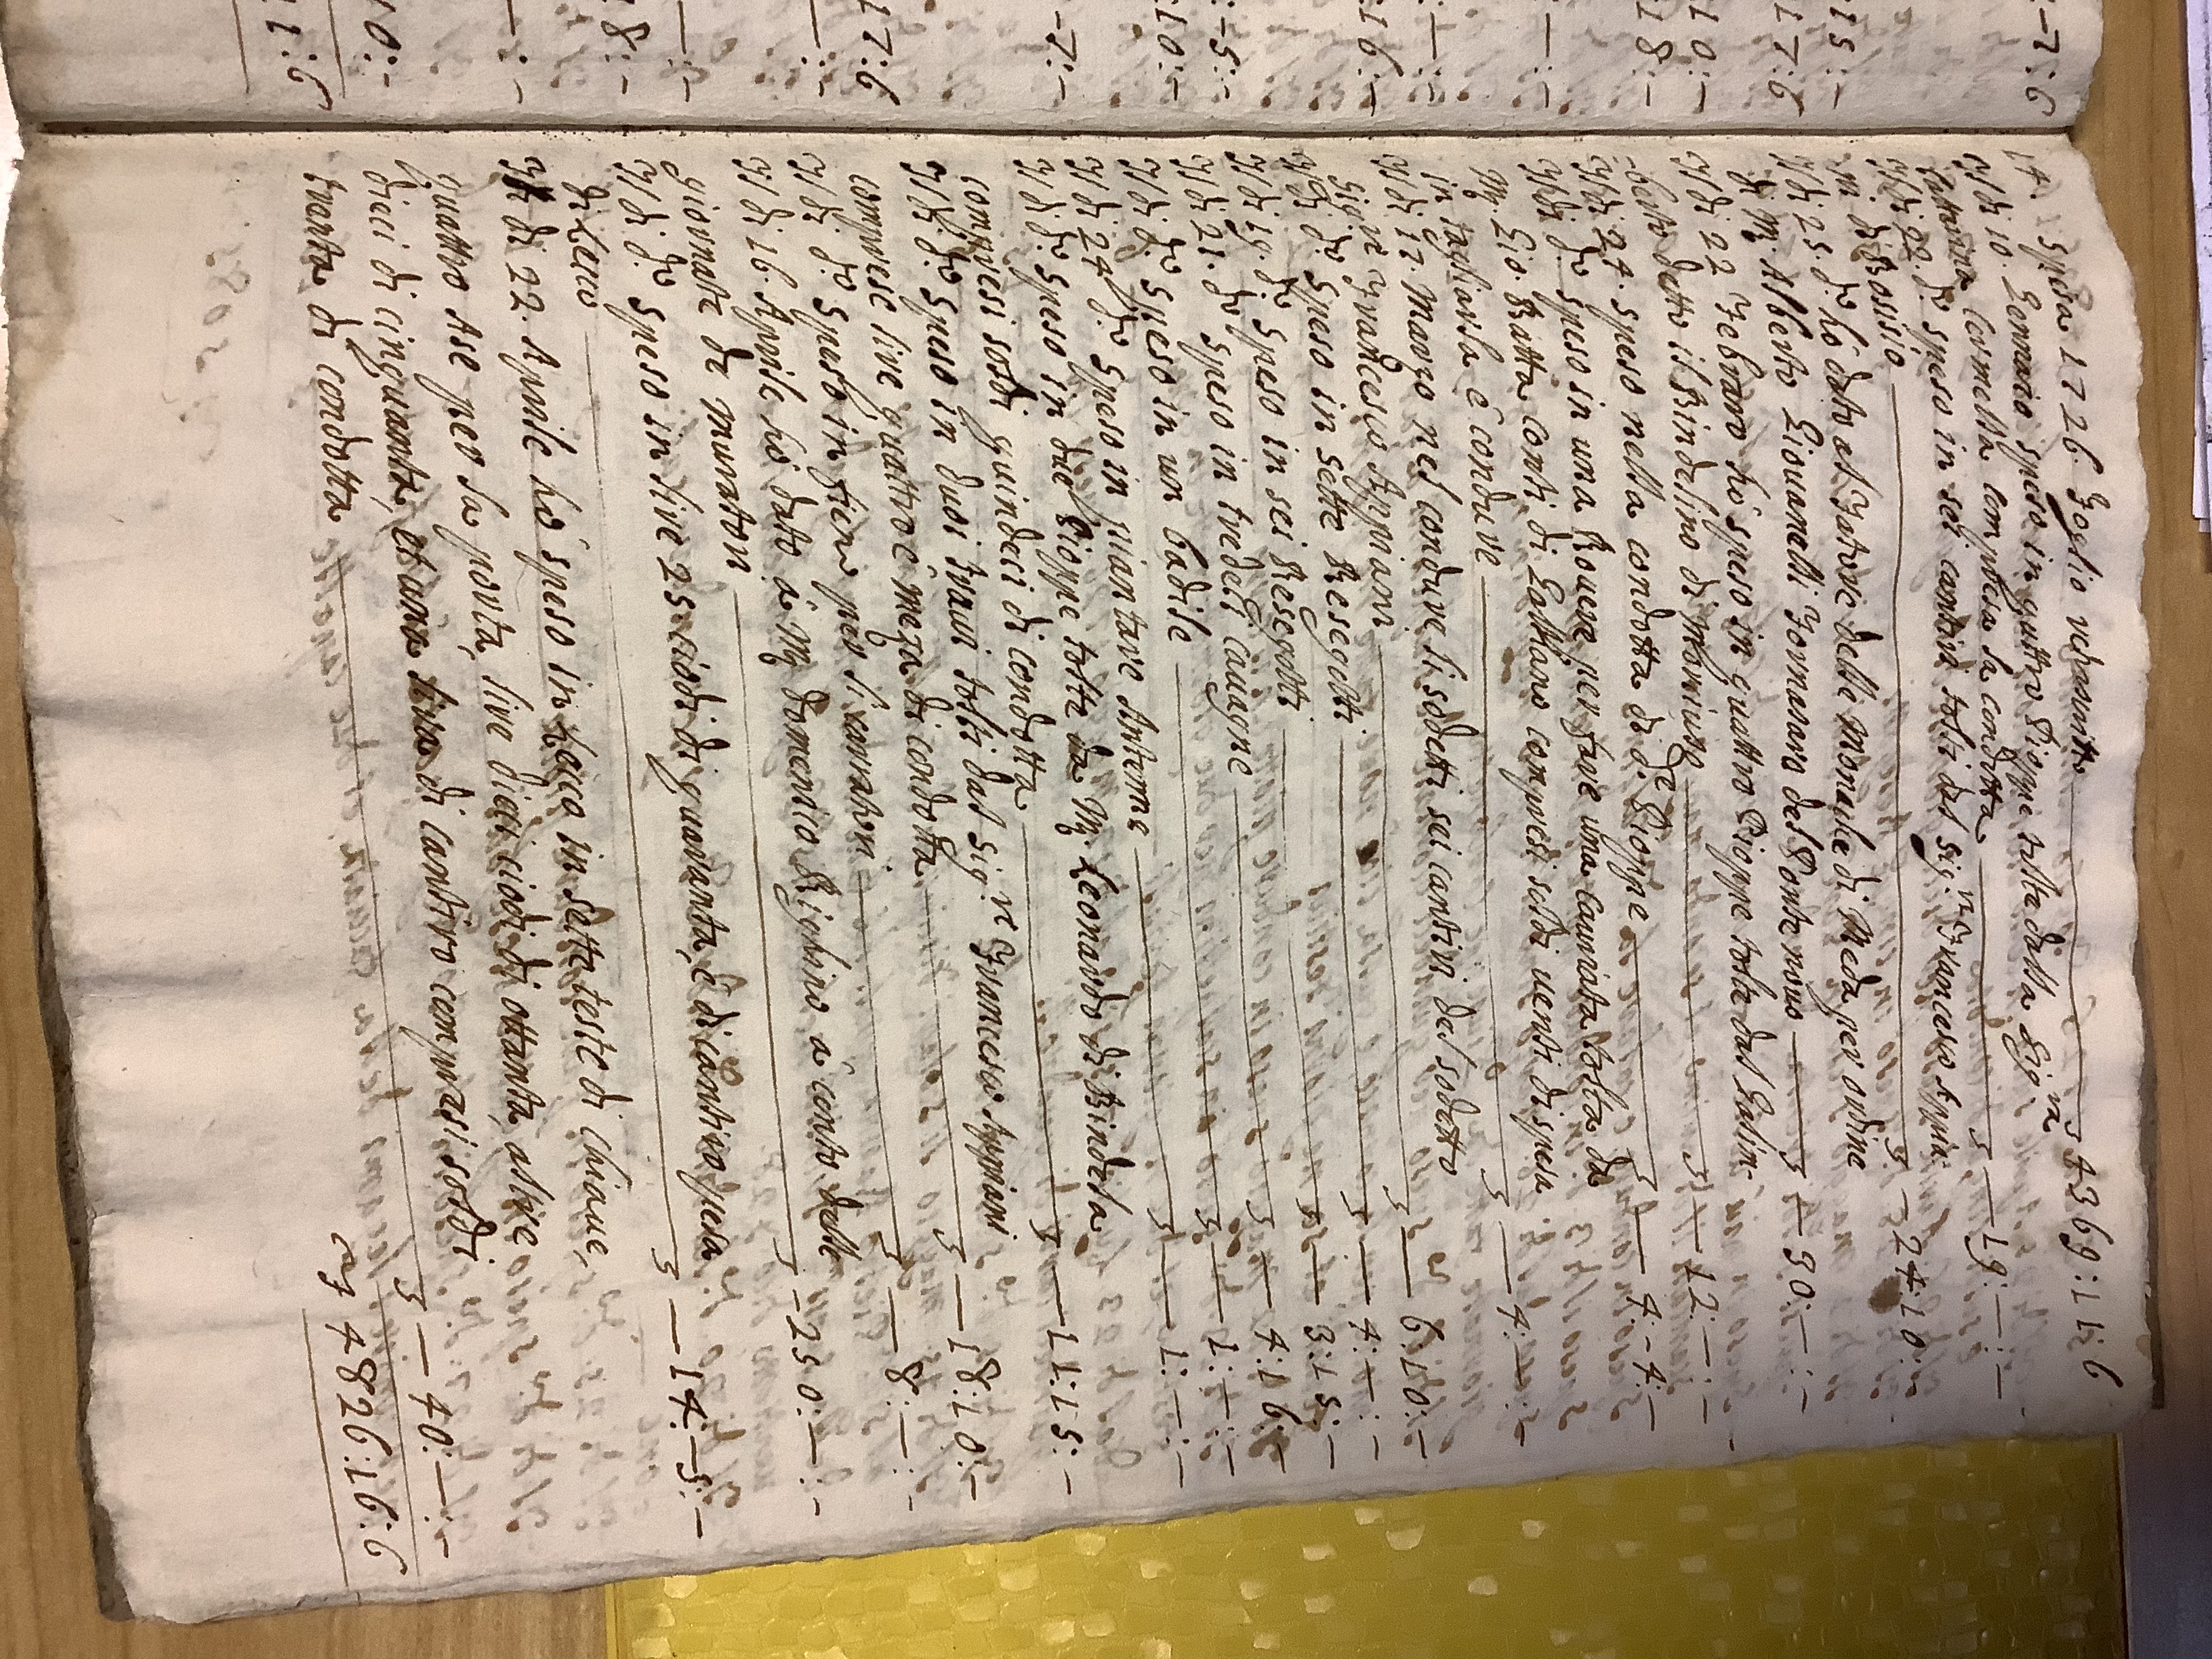 :-7:6
:15:-
17:6
10:-
18:-
-:-
:16:-
-:-
:-5:-
:10:-
-7:-
17:6
-:-
8:-
-:-
10:-
1:6
14 Spesa 1726. Foglio retrascritto 4369:11:6
Adi 10. Gennaro speso in quattro Pioppe tolte dalla Sig.ra
Catarina compresa la condotta 19:-:-
Adi 22. do speso in sei cantiri tolti dal Sig.r Francesco Appiani
di Bosisio 24:10:-
Adi 25. do hò dato al Fatore delle Monache di Meda per ordine
di M. Alberto Giouanelli Fornasaro del Ponte nouo 30:-:-
Adi 22 Febraro hò speso in quattro Pioppe tolte dal Galim-
berto detto il Brindelino di Mariaga 12:-:-
Adi 24. speso nella condotta di de Pioppe 4:-4:-
Adi do speso in una Rouere per fare una tolta da
M. Gio. Batta conti di compresi soldi uenti di spesa
in tagliarla è condure 4:-:-
Adi 12. Marzo nel condure li sodetti sei cantiri dal sodetto
Sig.re Francesco Appiani 6:10:-
Adi do. Speso in sette Resegotti 4:-:-
Adi 19. do speso in sei Resegotti 3:15:-
Adi 21. do speso in tredeci cauagne 4:16:-
Adi do. speso in un badile 1:-:-
Adi 24 do speso in piantare Antenne 1:-:-
Adi do speso in due Pioppe tolte da M. Leonardo Brindela
compresi soldi quindeci di condotta 11:15:-
Adi do speso in duoi traui tolti dal Sig.re Francesco Appiani
comprese lire quattro è meza di condotta 18:10:-
Adi do speso in fieno per li cauatori 8:-:-
Adi 16. Aprile hò dato à M. Domenico Righino à conto delle
giornate de muratori 250:-:-
Adi do speso in lire 25. ciodi di quaranta, è di cantiro spesa
di Lecco 14:-5:-
Adi 22. Aprile hò speso in Lecco in sette teste di chiaue,
quattro Ase per la porta, lire dieci ciodi di ottanta, altre
dieci di cinquanta, et una lira di cantiro compresi soldi
trenta di condotta 40:-:-
4826:16:6